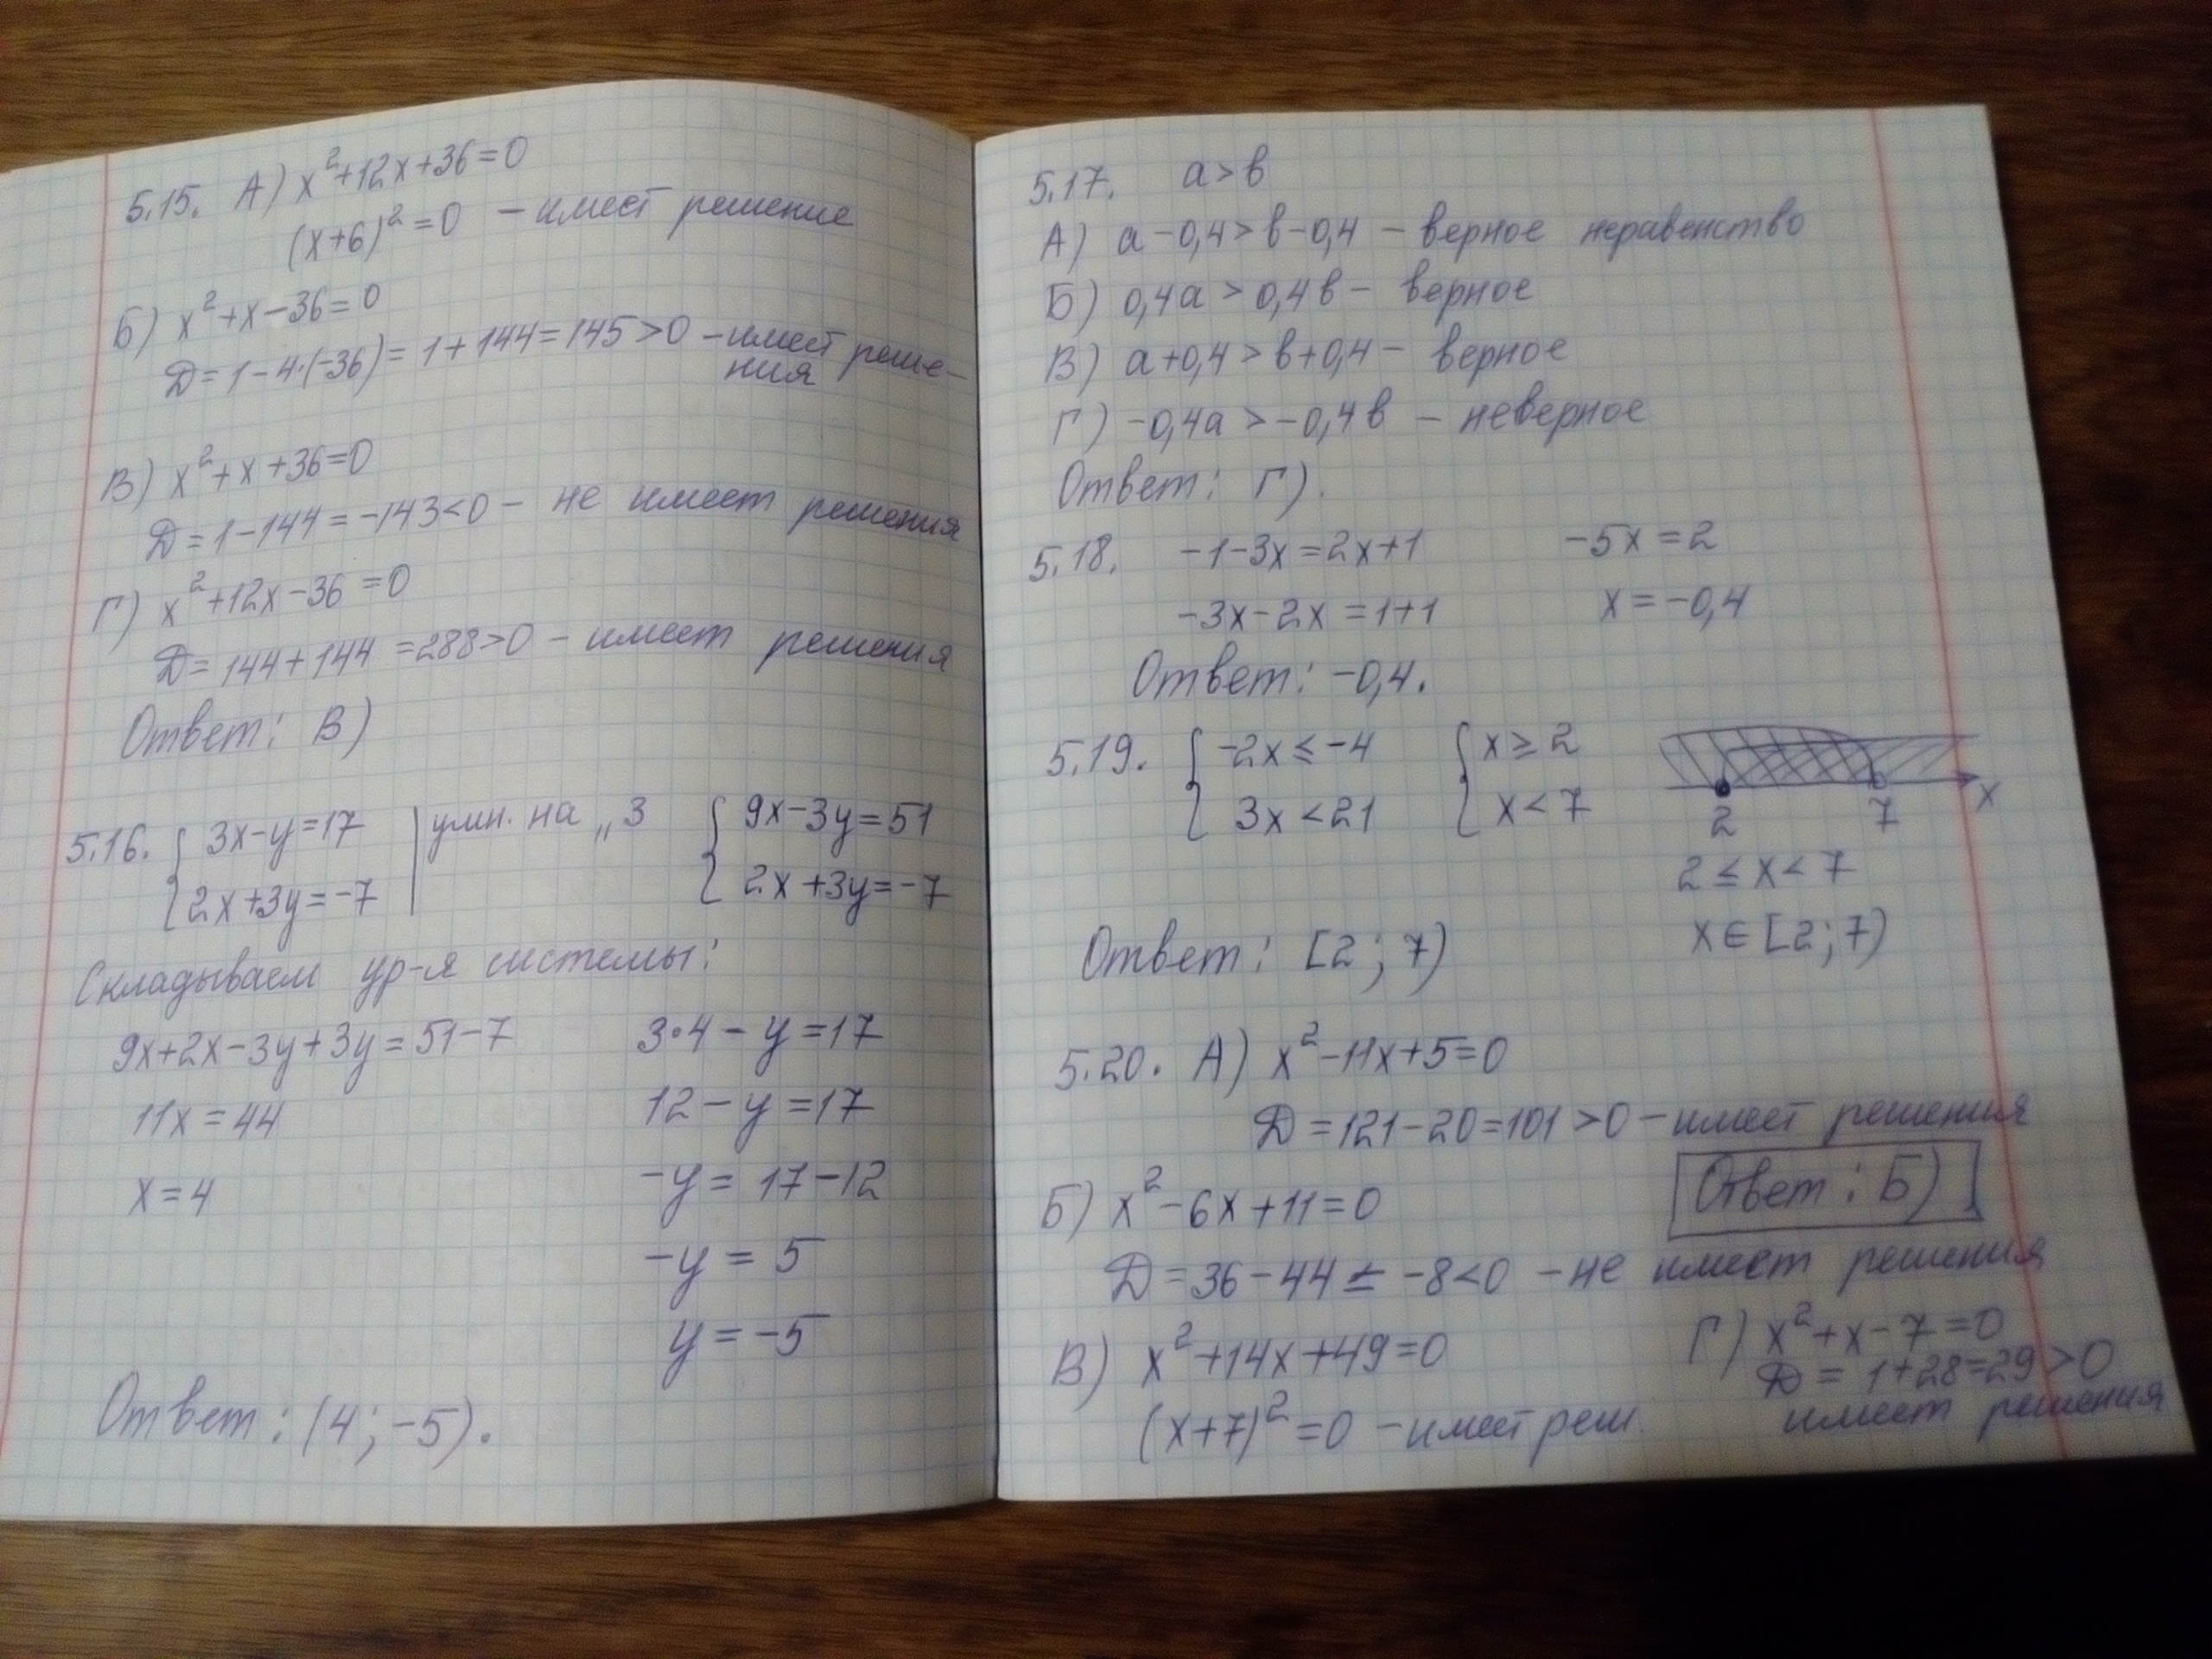 5.15. А) x²+12x+36=0
(x+6)²=0 – имеет решение
Б) x²+x–36=0
D=1–4·(–36)=1+144=145>0 – имеет реше–
ния
В) x²+x+36=0
D=1–144=–143<0 – не имеет решения
Г) x²+12x–36=0
D=144+144=288>0 – имеет решения
Ответ: В)
5.16. { 3x–y=17 | умн. на „3 { 9x–3y=51
2x+3y=–7 2x+3y=–7
Складываем ур-я системы:
9x+2x–3y+3y=51–7 3·4–y=17
11x=44 12–y=17
x=4 –y=17–12
–y=5
y=–5
Ответ: (4; –5).
5.17. a>b
А) a–0,4>b–0,4 – верное неравенство
Б) 0,4a>0,4b – верное
В) a+0,4>b+0,4 – верное
Г) –0,4a>–0,4b – неверное
Ответ: Г).
5.18. –1–3x=2x+1 –5x=2
–3x–2x=1+1 x=–0,4
Ответ: –0,4.
5.19. { –2x≤–4 { x≥2
3x<21 x<7
2 7 x
2≤x<7
x∈[2;7)
Ответ: [2;7)
5.20. А) x²–11x+5=0
D=121–20=101>0 – имеет решения
Б) x²–6x+11=0
Ответ: Б)
D=36–44=–8<0 – не имеет решения
В) x²+14x+49=0
(x+7)²=0 – имеет реш.
Г) x²+x–7=0
D=1+28=29>0
имеет решения